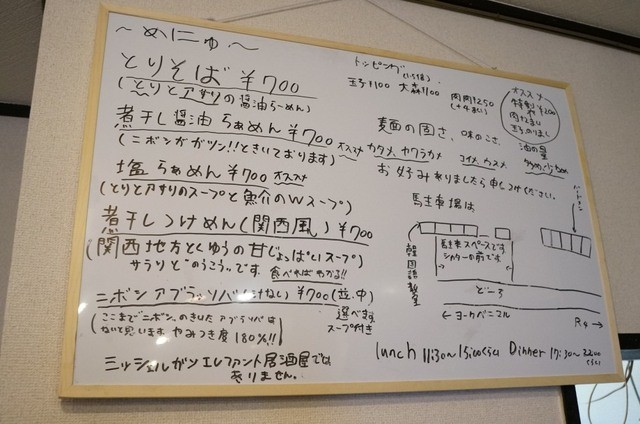 ～めにゅ～
とりそば ¥700
(とりとアサリの醤油らーめん)
煮干し醤油らぁめん ¥700 オススメ
(ニボシがガツン!!ときいております)
塩らぁめん ¥700 オススメ
(とりとアサリのスープと魚介のWスープ)
煮干しつけめん(関西風) ¥700
(関西地方とくゆうの甘じょっぱいスープ
サラリとのうこうです 食べればわかる!!
ニボシアブラソバ(汁なし) ¥700(並.中)
選べます
スープ付き
(ここまでニボシのきいたアブラソバは
ないと思います やみつき度 180%!!)
ミッシェルガンエレファント居酒屋では
ありません.
トッピング
玉子¥100 大森¥100 肉肉¥250
オススメ
特製 ¥200
肉
玉子
麺の固さ、味のこさ、油の量
カタメ、ヤワラカメ コイメ、ウスメ
お好みありましたら申しつけください。
駐車場は
駐車スペースです
シャッターの前です
韓国語教室
どーろ
←ヨークベニマル
R4→
lunch 11:30～15:00くらい Dinner 17:30～22:00くらい